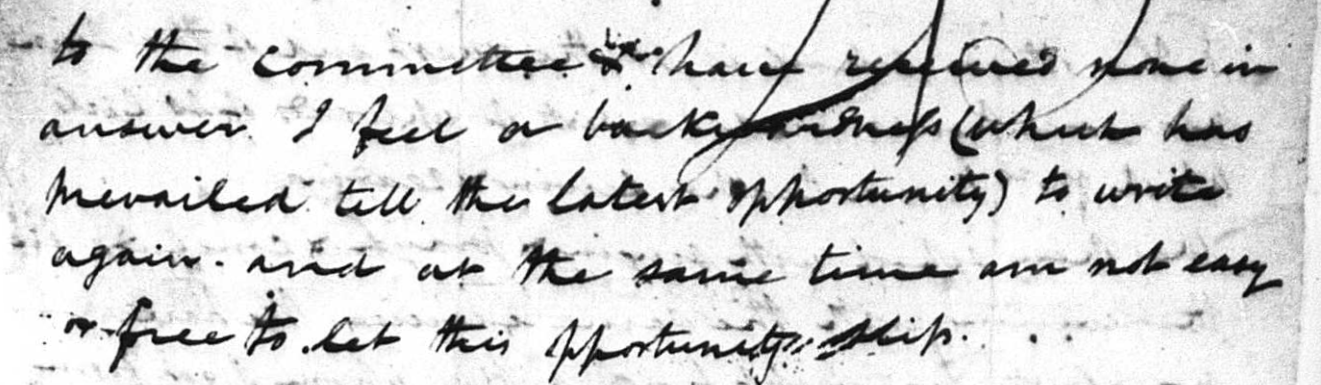 to the Committee & have received none in
answer. I feel a backwardness (which has
prevailed tell the latest opportunity) to write
again. and at the same time am not easy
or free to let this opportunity slip.